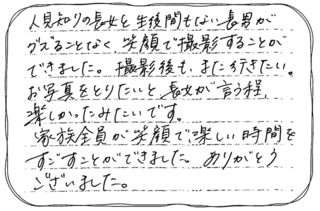 人見知りの長女と生後間もない長男が
グズることなく笑顔で撮影することが
できました。撮影後も、また行きたい。
お写真をとりたいと長女が言う程、
楽しかったみたいです。
家族全員が笑顔で、楽しい時間を
すごすことができました。ありがとう
ございました。